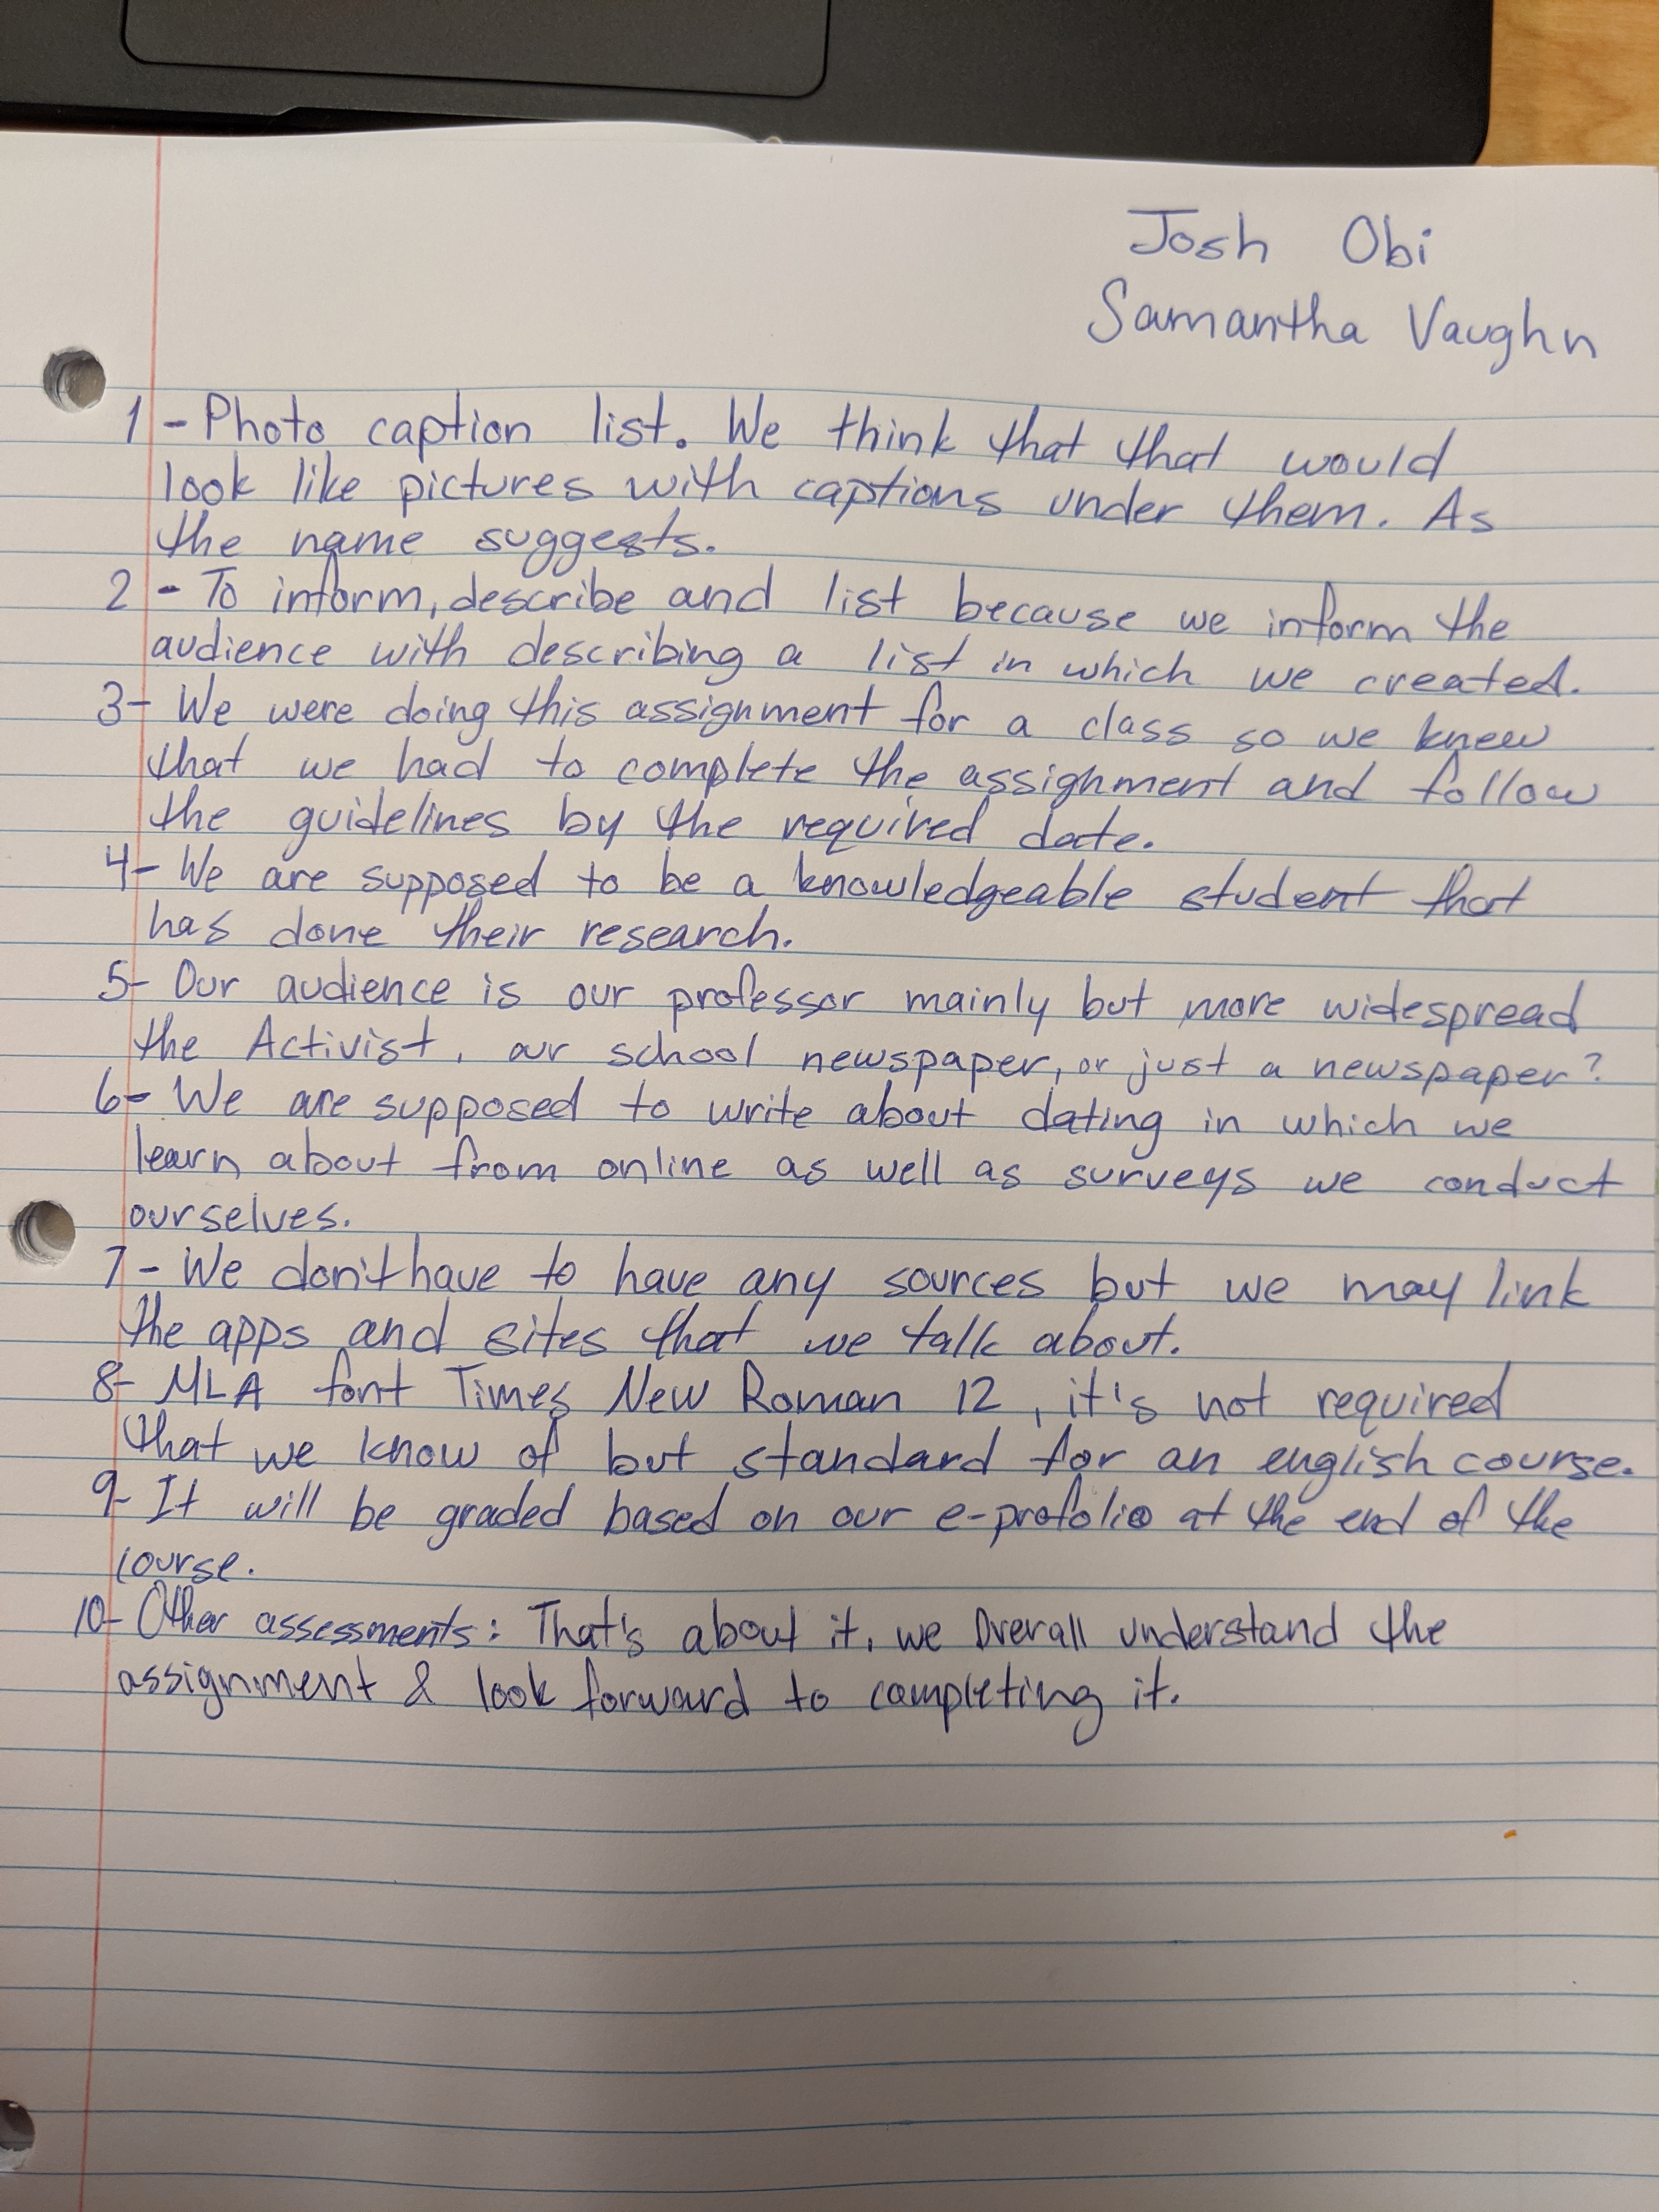 Josh Obi
Samantha Vaughn
1 - Photo caption list. We think that that would
look like pictures with captions under them. As
the name suggests.
2 - To inform, describe and list because we inform the
audience with describing a list in which we created.
3- We were doing this assignment for a class so we knew
that we had to complete the assignment and follow
the guidelines by the required date.
4- We are supposed to be a knowledgeable student that
has done their research.
5- Our audience is our professor mainly but more widespread
the Activist, our school newspaper, or just a newspaper?
6- We are supposed to write about dating in which we
learn about from online as well as surveys we conduct
ourselves.
7- We don't have to have any sources but we may link
the apps and sites that we talk about.
8- MLA font Times New Roman 12, it's not required
that we know of but standard for an english course.
9- It will be graded based on our e-profolio at the end of the
course.
10- Other assessments: That's about it, we overall understand the
assignment & look forward to completing it.